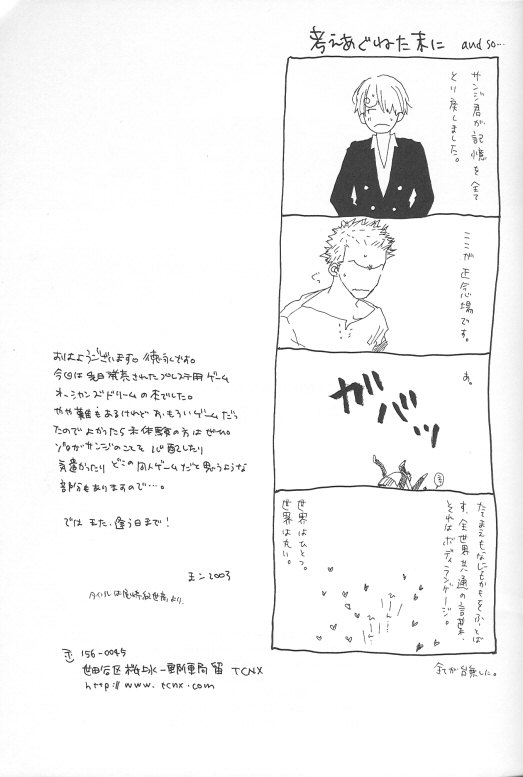 考えあぐねた末に and so…
サンジ君が記憶を全て
とり戻しました。
ここが正念場です。
ぐっ
あ。
ガバッ
たてまえもなにもかもをふっとば
す、全世界共通の言葉、
それはボディランゲージ。
世界はひとつ。
世界は丸い。
全てが台無した。
おはようございます。です。
今回は先日発売されたプレステ用ゲーム
オーシャンズドリームの本でした。
やや難もあるけれどおもろいゲームだっ
たのでよかったら未体験の方はぜひ。
ゾロがサンジのことを心配したり
気遣ったりどこの同人ゲームだと思うような
部分もありますので…。
では また、逢う日まで！
2003
タイトルは尾崎紀世彦より。
〒156-0045
世田谷区桜上水一郵便局留 TCNX
http://www.tcnx.com